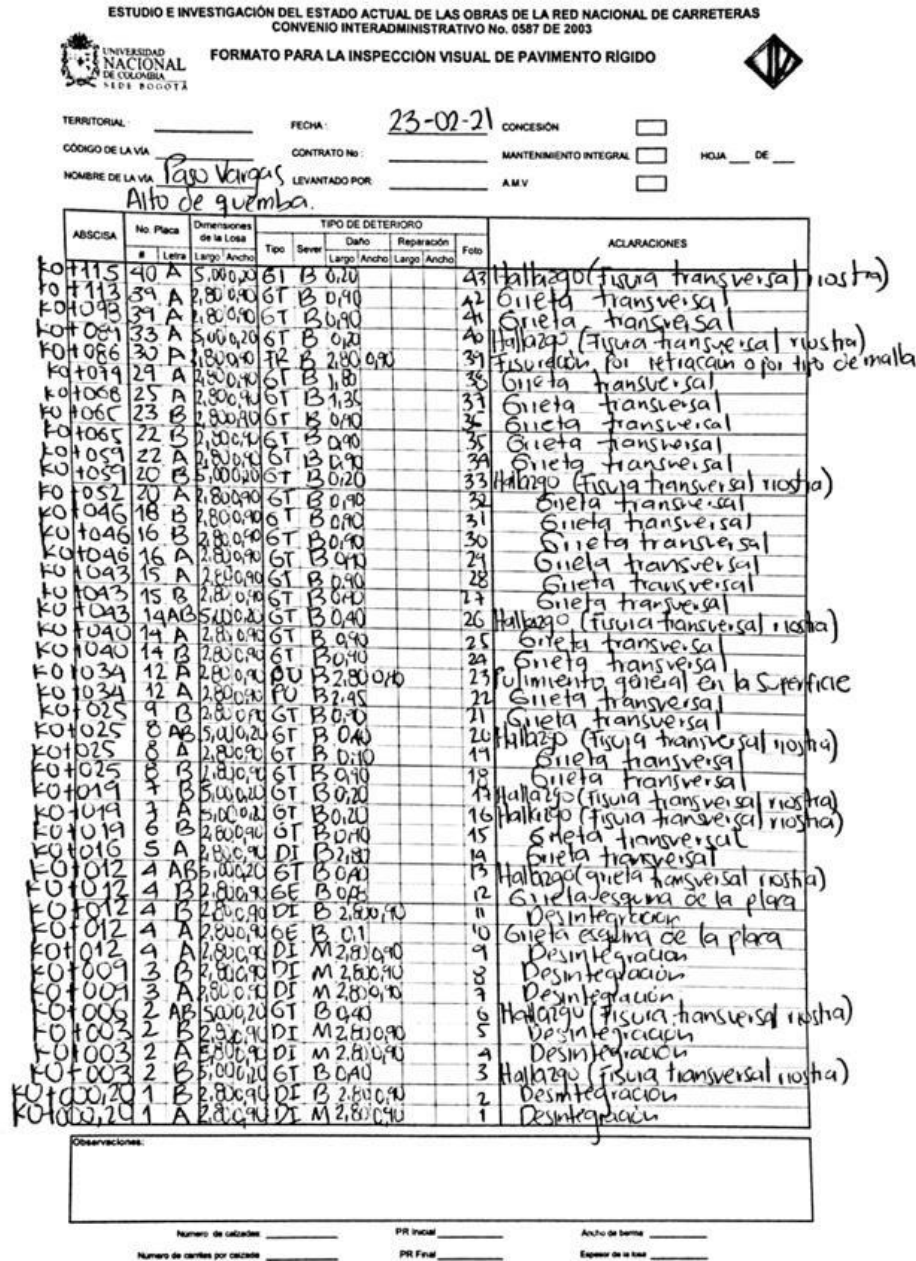 ESTUDIO E INVESTIGACIÓN DEL ESTADO ACTUAL DE LAS OBRAS DE LA RED NACIONAL DE CARRETERAS
CONVENIO INTERADMINISTRATIVO No. 0587 DE 2003
UNIVERSIDAD NACIONAL DE COLOMBIA SEDE BOGOTÁ
FORMATO PARA LA INSPECCIÓN VISUAL DE PAVIMENTO RÍGIDO
TERRITORIAL: FECHA: 23-02-21 CONCESIÓN
CÓDIGO DE LA VÍA CONTRATO No: MANTENIMIENTO INTEGRAL HOJA DE
NOMBRE DE LA VÍA Paso Vargas LEVANTADO POR A.M.V
Alto de guemba.
ABSCISA No. Placa Dimensiones de la Losa TIPO DE DETERIORO ACLARACIONES
Tipo Sever Daño Reparación Foto
# Letra Largo Ancho Largo Ancho Largo Ancho
K0+115 40 A 5,00 0,20 GT B 0,20 43 Hallazgo (fisura transversal riostra)
K0+113 39 A 2,80 0,90 GT B 0,90 42 Grieta transversal
K0+098 39 A 2,80 0,90 GT B 0,90 41 Grieta transversal
33 A 5,00 0,20 GT B 0,20 40 Hallazgo (fisura transversal riostra)
K0+086 30 A 2,80 0,90 2,80 0,90 39 Fisuración por retracción o por tipo de malla
K0+079 29 A 2,80 0,90 GT B 1,80 38 Grieta transversal
K0+068 25 A 2,80 0,90 GT B 37 Grieta transversal
K0+065 23 B 2,80 0,90 GT B 0,90 36 Grieta transversal
K0+065 22 B 2,80 0,90 GT B 0,90 35 Grieta transversal
K0+059 22 A 2,80 0,90 GT B 0,90 34 Grieta transversal
K0+059 20 B 5,00 0,20 GT B 0,20 33 Hallazgo (fisura transversal riostra)
K0+052 20 A 2,80 0,90 GT B 0,90 32 Grieta transversal
K0+046 18 B 2,80 0,90 GT B 0,90 31 Grieta transversal
K0+046 16 B 2,80 0,90 GT B 0,90 30 Grieta transversal
K0+046 16 A 2,80 0,90 GT B 0,90 29 Grieta transversal
K0+043 15 A 2,80 0,90 GT B 0,90 28 Grieta transversal
K0+043 15 B 2,80 0,90 GT B 0,90 27 Grieta transversal
K0+043 14 AB 5,00 0,20 GT B 0,40 26 Hallazgo (fisura transversal riostra)
K0+040 14 A 2,80 0,90 GT B 0,90 25 Grieta transversal
K0+040 14 B 2,80 0,90 GT B 0,90 24 Grieta transversal
K0+034 12 A 2,80 0,90 PU B 2,80 0,90 23 Pulimiento general en la superficie
K0+034 12 A 2,80 0,90 PU B 2,95 22 Grieta transversal
K0+025 9 B 2,80 0,90 GT B 0,90 21 Grieta transversal
K0+025 8 AB 5,00 0,20 GT B 0,40 20 Hallazgo (fisura transversal riostra)
K0+025 8 A 2,80 0,90 GT B 0,90 19 Grieta transversal
K0+025 8 B 2,80 0,90 GT B 0,90 18 Grieta transversal
K0+019 7 B 5,00 0,20 GT B 0,20 17 Hallazgo (fisura transversal riostra)
K0+019 7 A 5,00 0,20 GT B 0,20 16 Hallazgo (fisura transversal riostra)
K0+019 6 B 2,80 0,90 GT B 0,90 15 Grieta transversal
K0+016 5 A 2,80 0,90 DI B 2,80 14 Grieta transversal
K0+012 4 AB 5,00 0,20 GT B 0,40 13 Hallazgo (grieta transversal riostra)
K0+012 4 B 2,80 0,90 GE B 12 Grieta esquina de la placa
K0+012 4 B 2,80 0,90 DI B 2,80 0,90 11 Desintegración
K0+012 4 A 2,80 0,90 GE B 0,1 10 Grieta esquina de la placa
K0+012 4 A 2,80 0,90 DI M 2,80 0,90 9 Desintegración
K0+009 3 B 2,80 0,90 DI M 2,80 0,90 8 Desintegración
K0+009 3 A 2,80 0,90 DI M 2,80 0,90 7 Desintegración
K0+006 2 AB 5,00 0,20 GT B 0,40 6 Hallazgo (fisura transversal riostra)
K0+003 2 B 0,90 DI M 2,80 0,90 5 Desintegración
K0+003 2 A 0,90 DI M 2,80 0,90 4 Desintegración
K0+003 2 B 5,00 0,20 GT B 0,40 3 Hallazgo (fisura transversal riostra)
K0+000,20 1 B 2,80 0,90 DI B 2,80 0,90 2 Desintegración
K0+000,20 1 A 2,80 0,90 DI M 2,80 0,90 1 Desintegración
Observaciones:
Numero de calzadas PR Inicial Ancho de berma
Numero de carriles por calzada PR Final Espesor de la losa